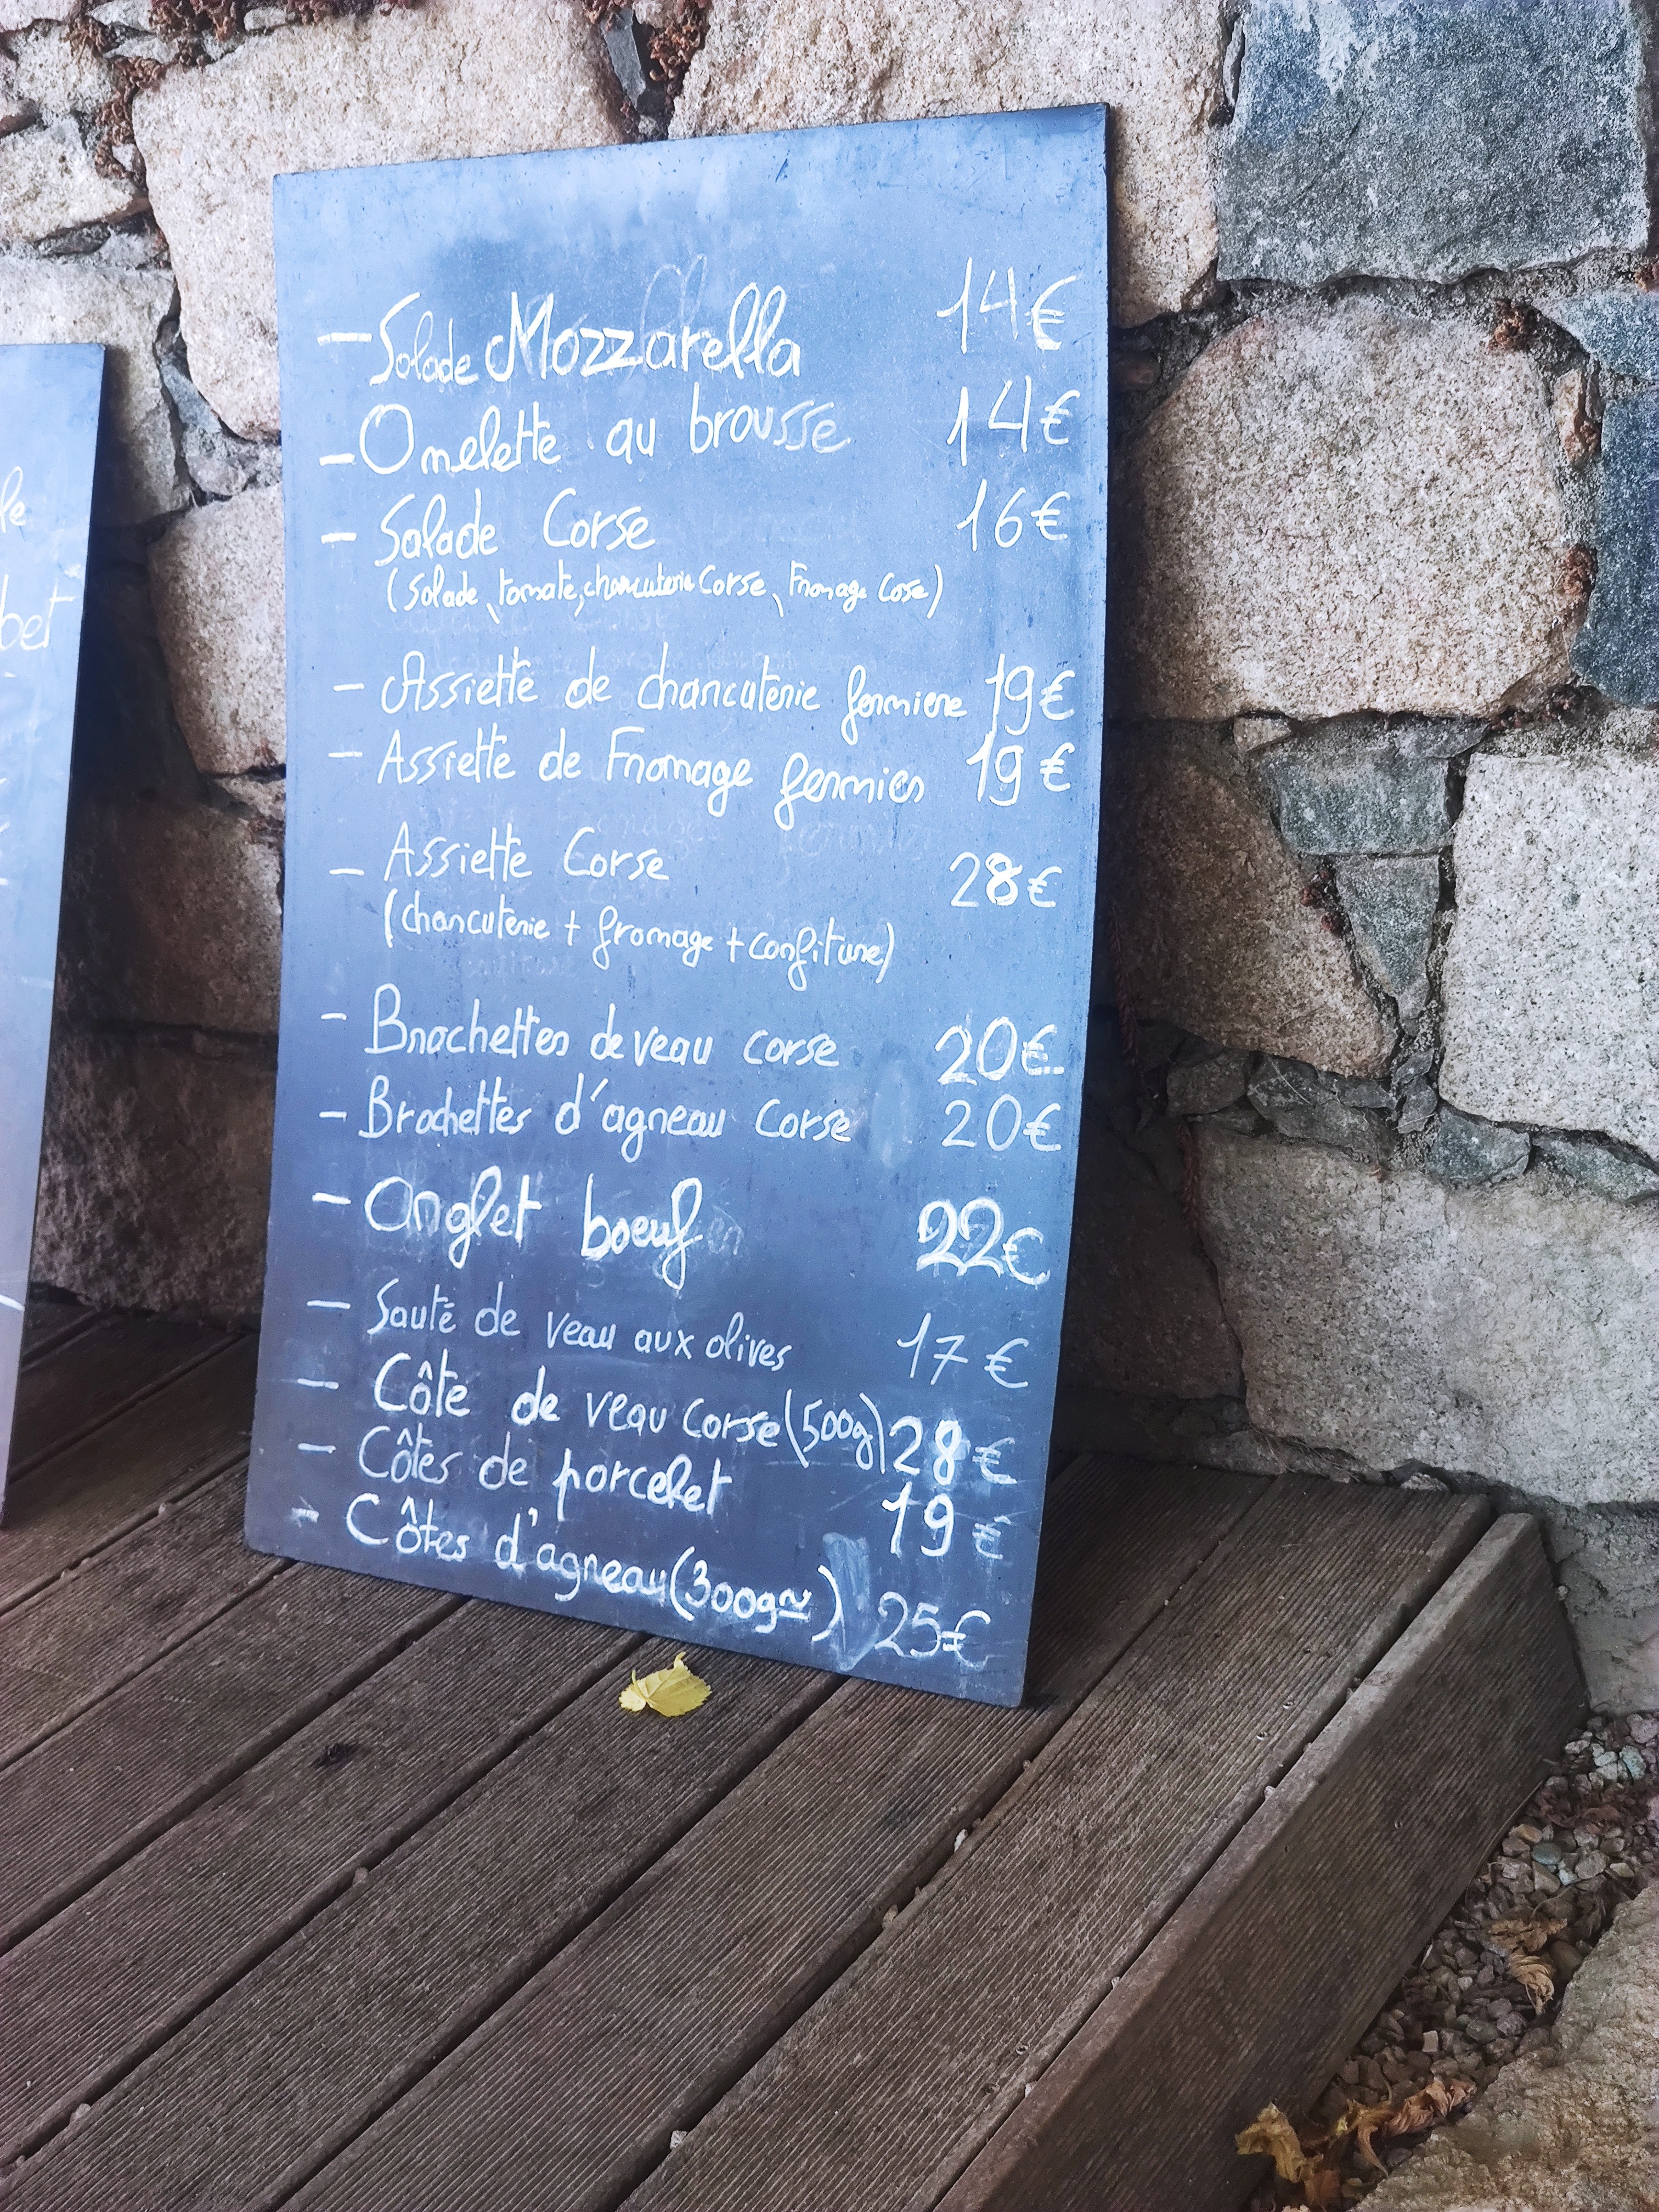 le
bet
- Salade Mozzarella 14€
- Omelette au brousse 14€
- Salade Corse 16€
(Salade, tomate, charcuterie Corse, Fromage Cose)
- Assiette de charcuterie fermiere 19€
- Assiette de Fromage fermier 19€
- Assiette Corse 28€
(charcuterie + fromage + confiture)
- Brochettes de veau corse 20€
- Brochettes d'agneau Corse 20€
- Onglet boeuf 22€
- Sauté de veau aux olives 17€
- Côte de veau Corse (500g) 28€
- Côtes de porcelet 19€
- Côtes d'agneau (300gr) 25€